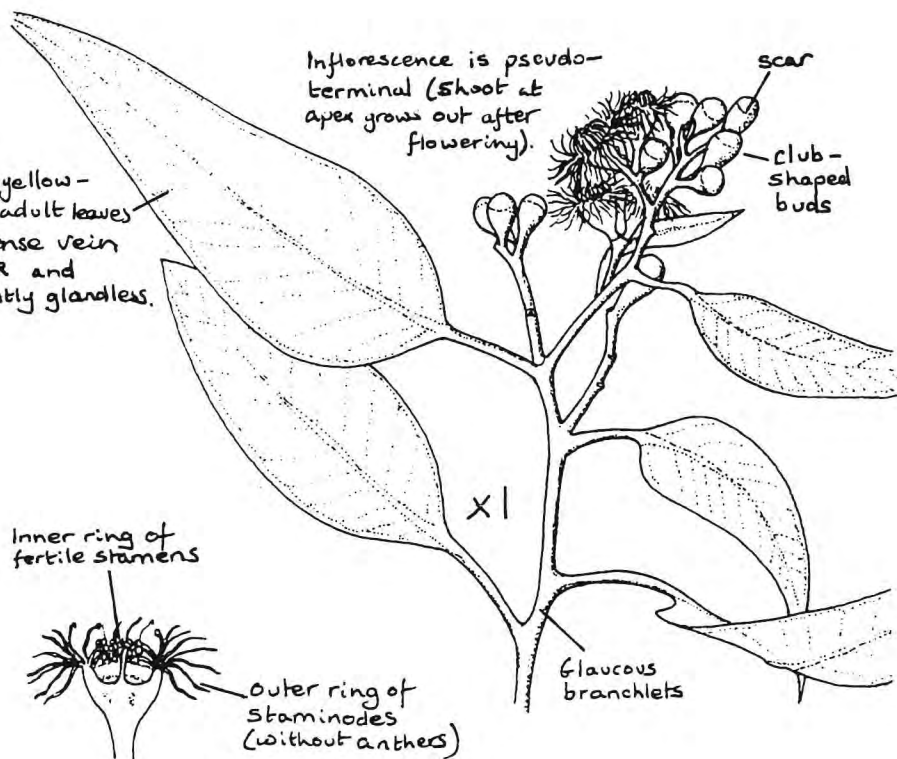 Inflorescence is pseudo-
terminal (shoot at
apex grows out after
flowering).
scar
club-
shaped
buds
yellow-
adult leaves
nse vein
R and
tly glandless.
x1
Inner ring of
fertile stamens
Outer ring of
staminodes
(without anthers)
Glaucous
branchlets